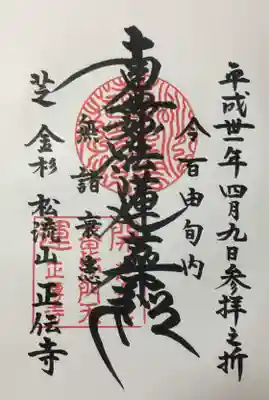 平成丗一年四月九日参拝之折
令百由旬内
南無妙法蓮華経
無諸衰患
芝 金杉 松流山 正伝寺